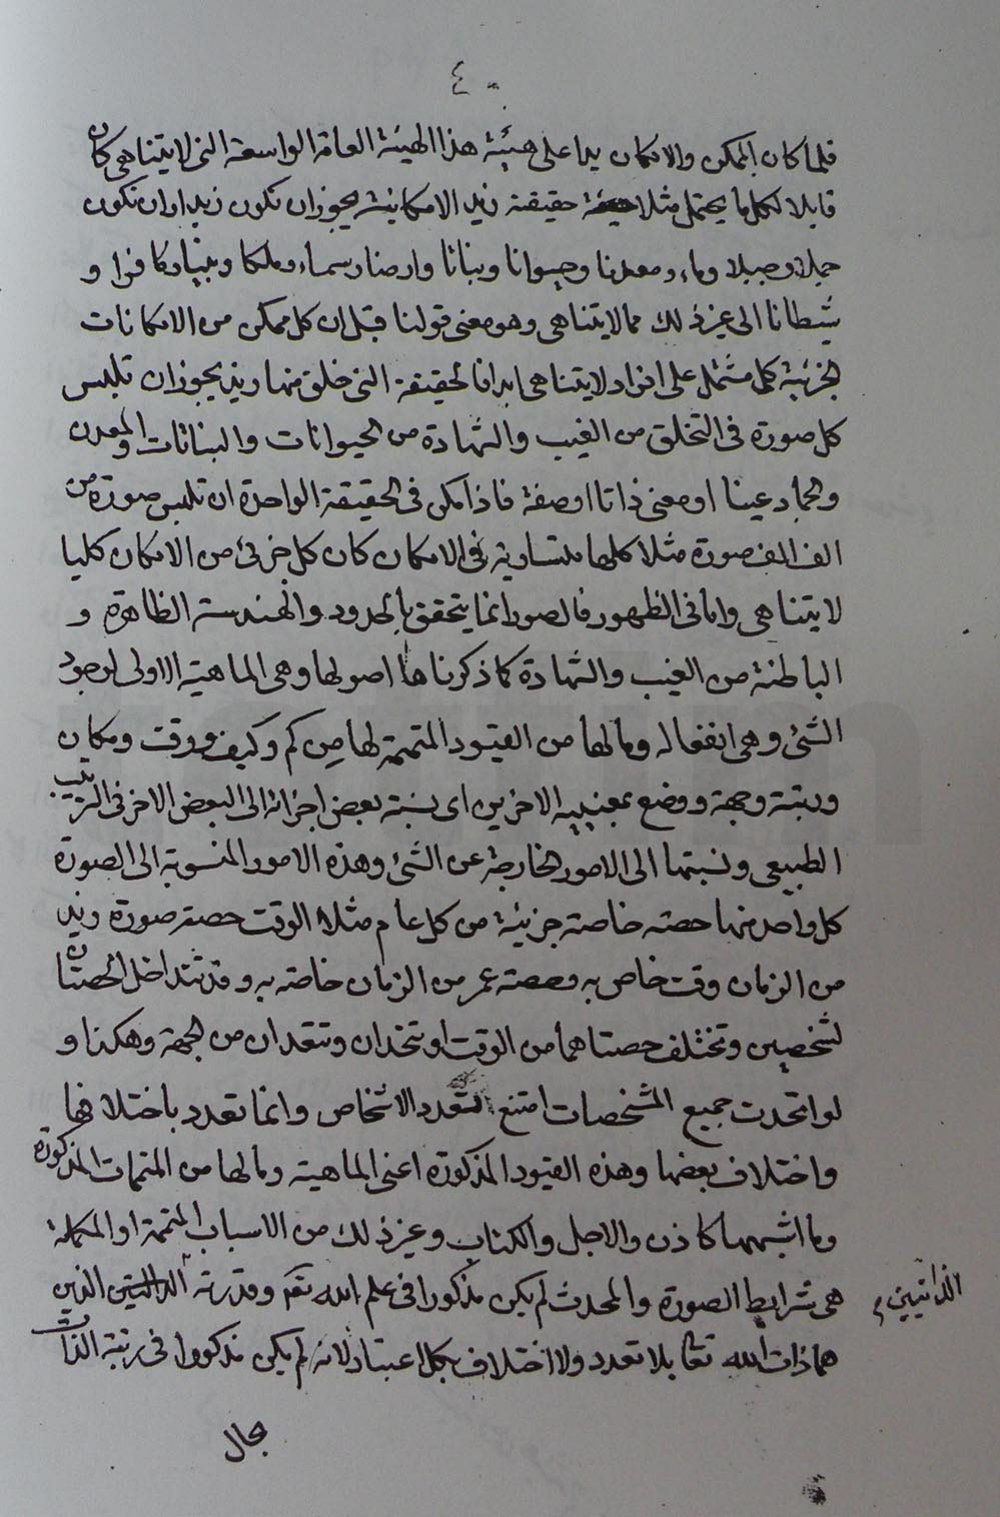 ٤٠
فلما كان الممكن والامكان بدا على هيئة هذا الهيئة العامة الواسعة التى لا يتناهى كان
قابلا لكل ما يحتمل مثلا حقيقة زيد الامكانية يجوز ان تكون زيدا وان تكون
جملا وجبلا وماء ومعدنا وحيوانا ونباتا وارضا وسماء وملكا ونبيا وكافرا و
شيطانا الى غير ذلك مما لا يتناهى وهو معنى قولنا قبل ان كل ممكن من الامكانات
الجزئية كلى مشتمل على افراد لا يتناهى ابدا فالحقيقة التى خلق منها زيد يجوز ان تلبس
كل صورة فى التخلق من الغيب والشهادة من الحيوانات والنباتات والمعدن
والجماد عينا او معنى ذاتا او صفة فاذا امكن فى الحقيقة الواحدة ان تلبس صورة من
الف الف صورة مثلا كلها متساوية فى الامكان كان كل جزئى من الامكان كليا
لا يتناهى واما فى الظهور فالصور انما يتحقق بالحدود والهندسة الظاهرة و
الباطنة من الغيب والشهادة كما ذكرنا هنا اصولها وهى الماهية الاولى لوجود
الشئ وهى انفعاله وما لها من القيود المتممة لها من كم وكيف ووقت ومكان
ورتبة وجهة ووضع بمعنييه الاخرين اى نسبة بعض اجزائه الى البعض الاخر فى الترتيب
الطبيعى ونسبتها الى الامور الخارجة عن الشئ وهذه الامور المنسوبة الى الصورة
كل واحد منها حصته خاصة جزئية من كل عام مثلا الوقت حصة صورة زيد
من الزمان وقت خاص به وحصة عمر من الزمان خاصة به وقد تتداخل الحصتان
لشخصين وتختلف حصتاهما من الوقت او تتحدان وتتعددان من الجهة وهكذا و
لو اتحدت جميع المشخصات امتنع تعدد الاشخاص وانما تعدد باختلافها
واختلاف بعضها وهذه القيود المذكورة اعنى الماهية وما لها من المتممات المذكورة
وما اشبهها كاذن والاجل والكتاب وغير ذلك من الاسباب المتممة او المكملة
هى شرايط الصورة والمحدث لم يكن مذكورا فى علم الله تع وقدرته الذاتيين الذين
الذاتيين
هما ذات الله تعا بلا تعدد ولا اختلاف بكل اعتبار لانه لم يكن مذكورا فى رتبة الذات
بحال